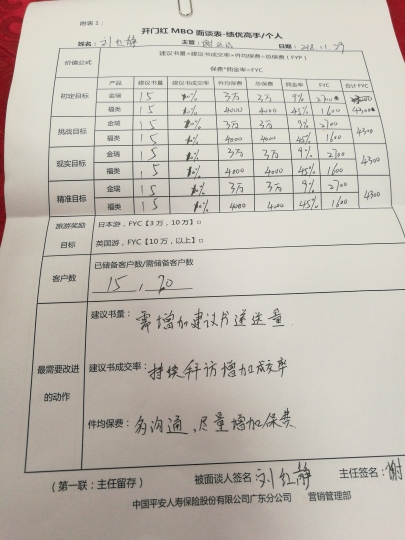 附表1：
开门红 MBO 面谈表-绩优高手/个人
姓名：刘红静 主管：谢 日期：2018.11.29
价值公式 建议书量×建议书成交率×件均保费=总保费（FYP）
保费*佣金率=FYC
产品 建议书量 建议书成交率 件均保费 总保费 佣金率 FYC 合计FYC
初定目标 金瑞 15 10% 3万 3万 9% 2700
福类 15 10% 4000 4000 45% 1600 4300
挑战目标 金瑞 15 10% 3万 3万 9% 2700 4300
福类 15 10% 4000 4000 45% 1600
现实目标 金瑞 15 10% 3万 3万 9% 2700 4300
福类 15 10% 4000 4000 45% 1600
精准目标 金瑞 15 10% 3万 3万 9% 2700 4300
福类 15 10% 4000 4000 45% 1600
旅游奖励 日本游，FYC【3万，10万】□
目标 英国游，FYC【10万，以上】□
已储备客户数/需储备客户数
客户数 15 , 20
建议书量：需增加建议书递送量
最需要改进
的动作
建议书成交率：持续拜访增加成交率
件均保费：多沟通，尽量增加保费
（第一联：主任留存） 被面谈人签名：刘红静 主任签名：谢
中国平安人寿保险股份有限公司广东分公司 营销管理部